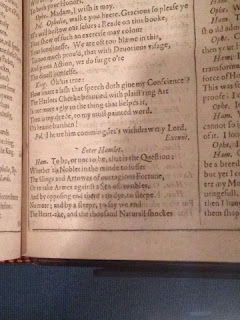 Madam, I wish it may.
Pol. Ophelia, walke you heere. Gracious so please ye
We will bestow our selues: Reade on this booke,
That shew of such an exercise may colour
Your lonelinesse. We are oft too blame in this,
'Tis too much prou'd, that with Deuotions visage,
And pious Action, we do surge o're
The diuell himselfe.
King. Oh 'tis true:
How smart a lash that speech doth giue my Conscience?
The Harlots Cheeke beautied with plaist'ring Art
Is not more vgly to the thing that helpes it,
Then is my deede, to my most painted word.
Oh heauie burthen!
Pol. I heare him comming, let's withdraw my Lord.
Exeunt.
Enter Hamlet.
Ham. To be, or not to be, that is the Question:
Whether 'tis Nobler in the minde to suffer
The Slings and Arrowes of outragious Fortune,
Or to take Armes against a Sea of troubles,
And by opposing end them: to dye, to sleepe
No more; and by a sleepe, to say we end
The Heart-ake, and the thousand Naturall shockes
Ham.
Ophe.
Ham.
force of